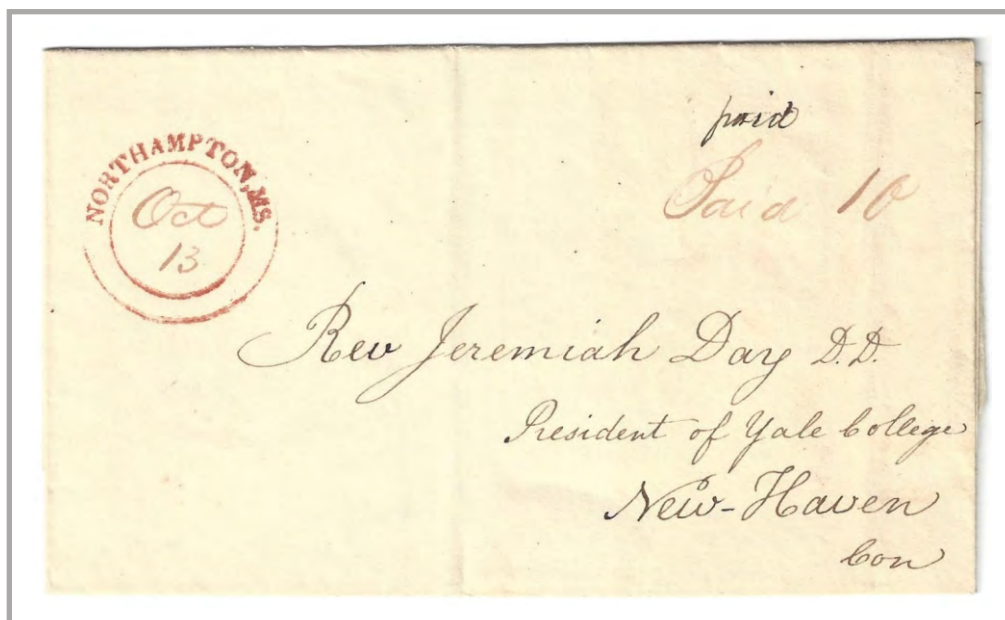 NORTHAMPTON, MS.
Oct
13
paid
Paid 10
Rev Jeremiah Day D.D.
President of Yale College
New-Haven
Con